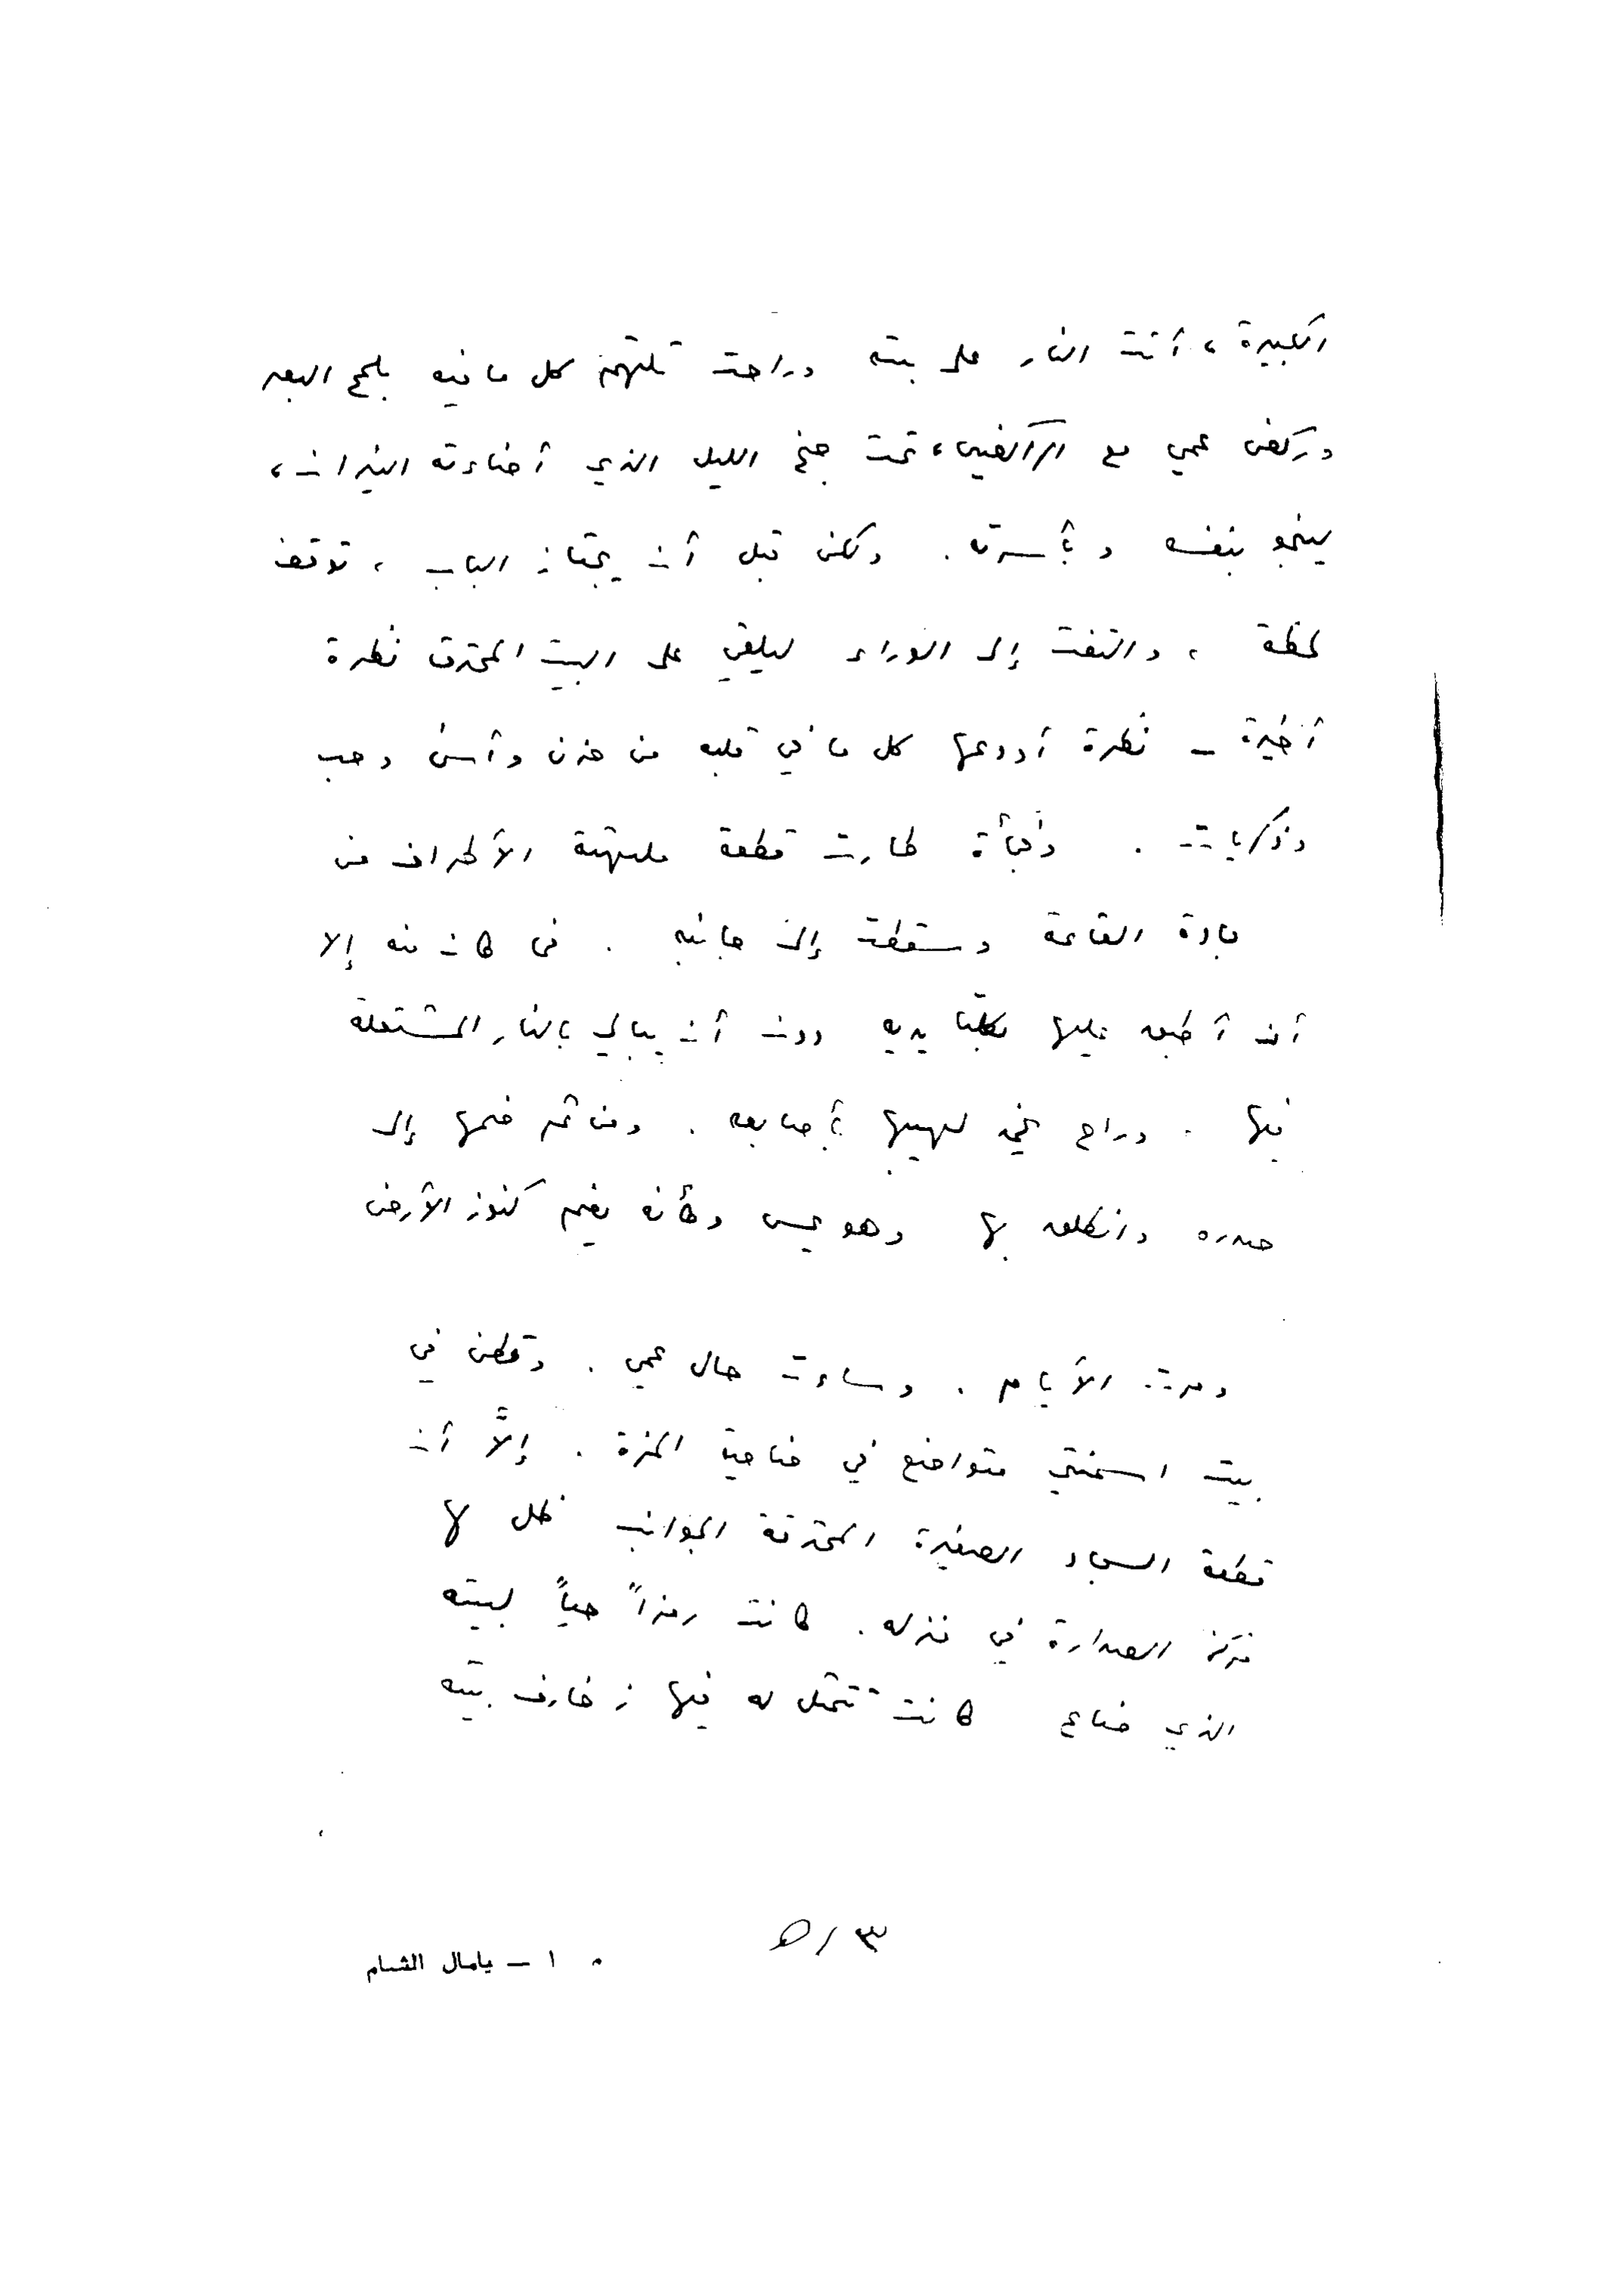 الكبيرة ، أتت النار على بيته وراحت تلتهم كل ما فيه بلمح البصر
وركض عمي مع الراكضين ، تحت جنح الليل الذي أضاءته النيران ،
لينجو بنفسه و بأسرته . ولكن قبل أن يجتاز الباب ، توقف
لحظة ، والتفت إلى الوراء ليلقي على البيت المحترق نظرة
أخيرة - نظرة أودعها كل ما في قلبه من حزن وأسى وحب
وذكريات . وفجأة طارت قطعة ملتهبة الأطراف من
سجادة القاعة وسقطت إلى جانبه . فما كان منه إلا
أن أطبق عليها بكلتا يديه دون أن يبالي بالنار المشتعلة
فيها . وراح يخمد لهيبها بأصابعه . ومن ثم ضمها إلى
صدره وانطلق بها وهو يحس وكأنه يضم كنوز الأرض
ومرت الأيام . وساءت حال عمي . وقطن في
بيت اسمنتي متواضع في ضاحية المزة . إلاَّ أن
قطعة السجاد الصغيرة المحترقة الجوانب ظل لها
مركز الصدارة في منزله . كانت رمزاً حياً لبيته
الذي ضاع كانت تتمثل له فيها زخارف بيته
٣ / ه
١ - يامال الشام